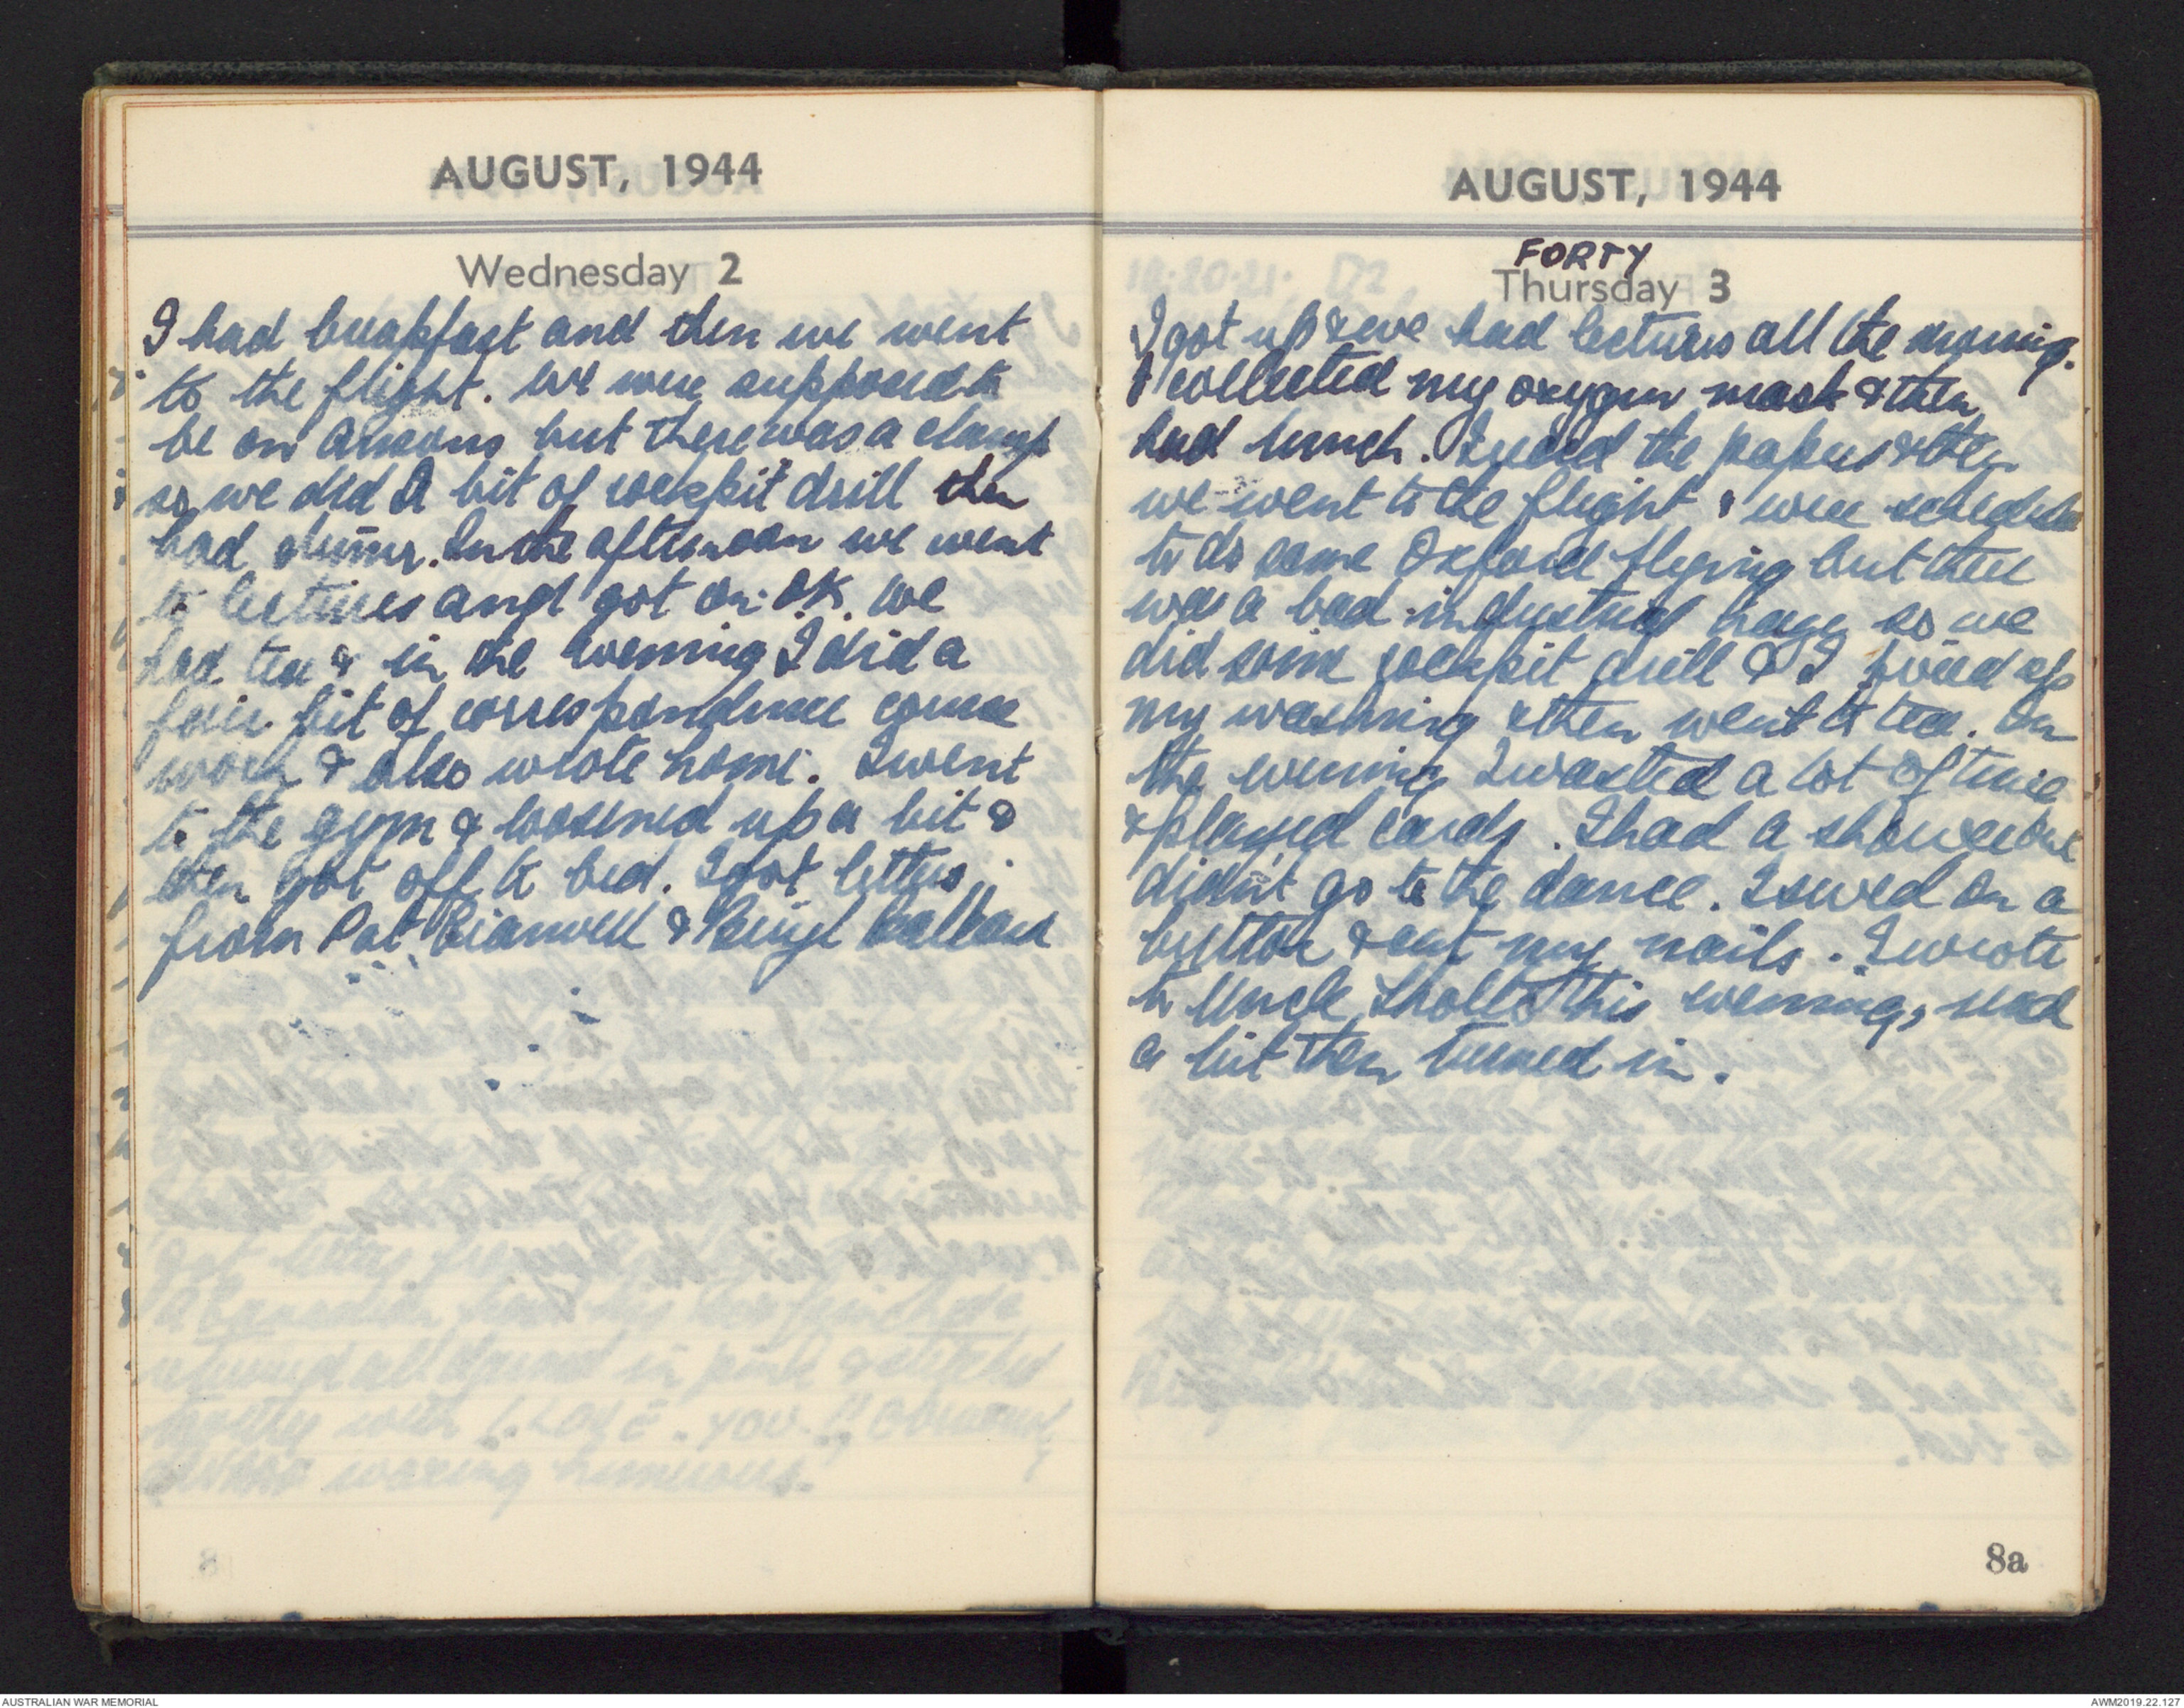 AUGUST, 1944
Wednesday 2
I had breakfast and then we went
to the flight. We were supposed to
be on Ansons but there was a clamp
so we did a bit of cockpit drill then
had dinner. In the afternoon we went
to lectures and got on OK. We
had tea & in the evening I did a
fair bit of correspondence course
work & also wrote home. I went
to the gym & loosened up a bit &
then got off to bed. I got letters
from Pat & Beryl
AUGUST, 1944
FORTY
Thursday 3
I got up & we had lectures all the morning.
I collected my oxygen mask & then
had lunch. I read the papers & then
we went to the flight & were
to do some Oxford flying but there
was a bad industrial haze so we
did some cockpit drill & I fixed up
my washing & then went to tea. In
the evening I wasted a lot of time
& played cards. I had a shower but
didn't go to the dance. I sewed on a
button & cut my nails. I wrote
to Uncle this evening, read
a bit then turned in.
8a
AUSTRALIAN WAR MEMORIAL
AWM2019.22.127